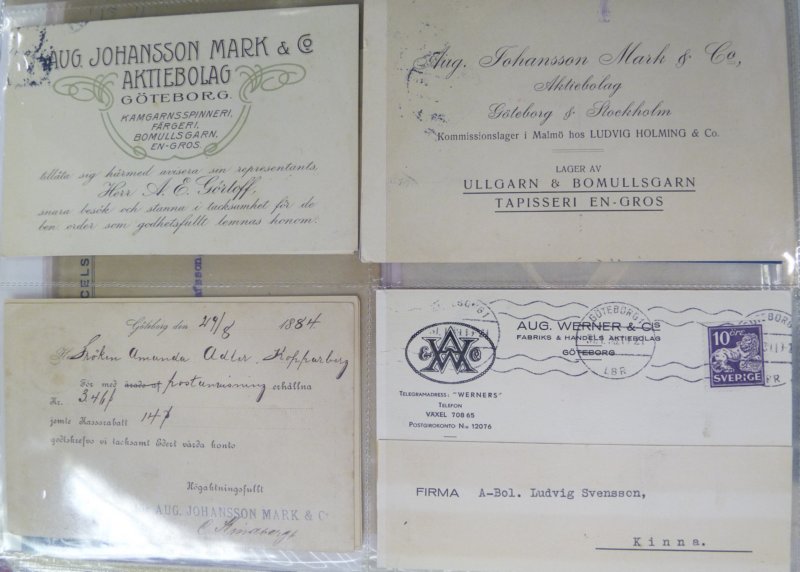 AUG. JOHANSSON MARK & Co
AKTIEBOLAG
GÖTEBORG.
KAMGARNSSPINNERI,
FÄRGERI,
BOMULLSGARN,
EN-GROS.
tillåta sig härmed avisera sin representants,
Herr A. E. Görloff,
snara besök och stanna i tacksamhet för de
ben order som godhetsfullt lemnas honom.
Aug. Johansson Mark & Co,
Aktiebolag
Göteborg & Stockholm
Kommissionslager i Malmö hos LUDVIG HOLMING & Co.
LAGER AV
ULLGARN & BOMULLSGARN
TAPISSERI EN-GROS
CELS
Göteborg den 29/8 1884
Fröken Amanda Adler, Kopparberg
För med postanvisning erhållna
Kr. 3.46
jemte Kassarabatt 14
godtskrefvo vi tacksamt Edert värda konto
Högaktningsfullt
AUG. JOHANSSON MARK & Co
AUG. WERNER & Co's
FABRIKS & HANDELS AKTIEBOLAG
GÖTEBORG
GÖTEBORG 1
LBR
10 ÖRE
SVERIGE
AW & Co
TELEGRAMADRESS: "WERNERS"
TELEFON
VÄXEL 708 65
POSTGIROKONTO No 12076
FIRMA A-Bol. Ludvig Svensson,
Kinna.